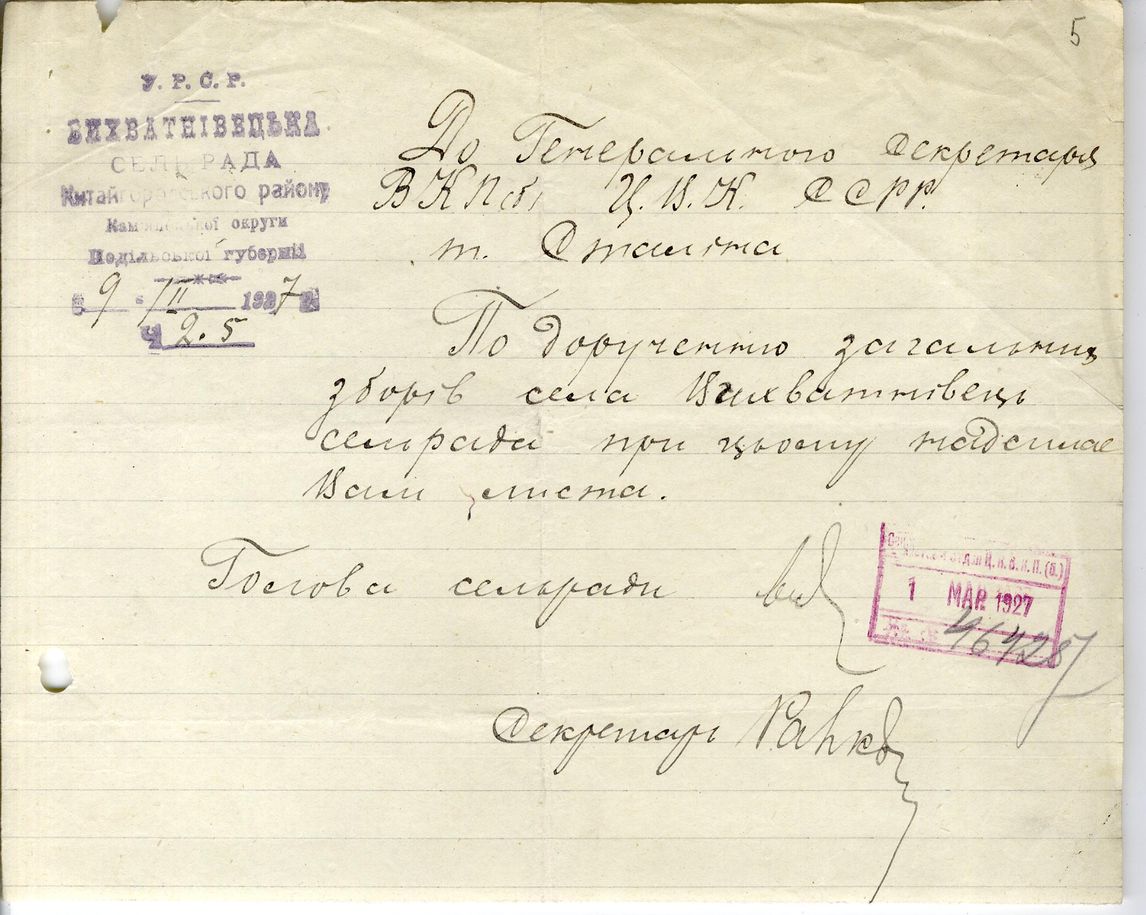 5
У.Р.С.Р.
ВИХВАТНІВЕЦЬКА
СЕЛЬРАДА
Китайгородського району
Кам'янецької округи
Подільської губерніі
9 /II 1927 р.
Ч 2.5
До Генерального Секретаря
ВКП(б) Ц.В.К. ССРР.
т. Сталіна
По дорученню загальних
зборів села Вихватнівець
сельрада при цьому надсилає
Вам листа.
Голова сельради
Ц.К.В.К.П.(б.)
1 МАР. 1927
46428
Секретарь